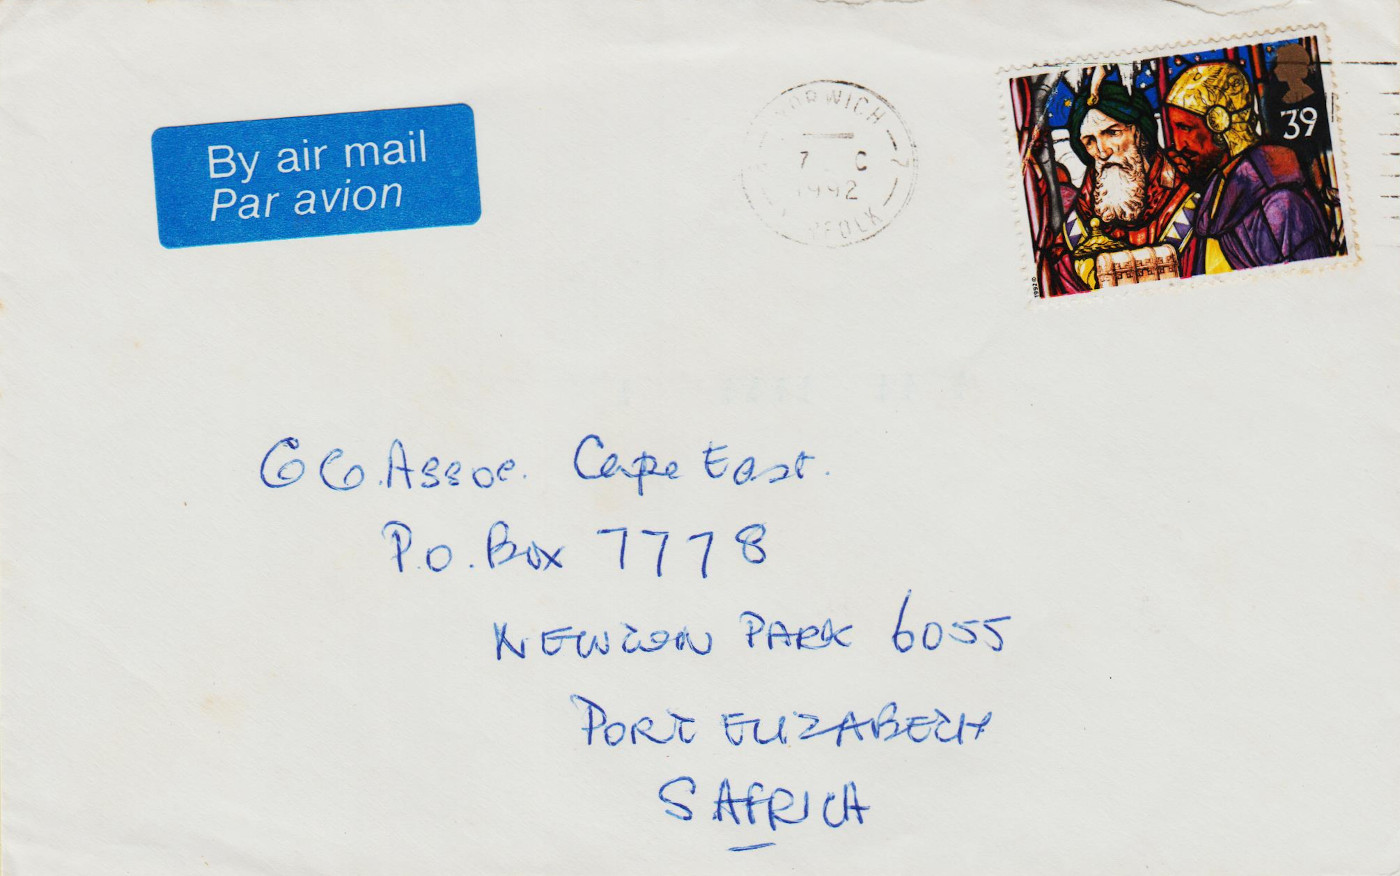 By air mail
Par avion
NORWICH
7
1992
39
1992
GG.Assoc. Cape East.
P.O. Box 7778
NEWTON PARK 6055
PORT ELIZABETH
S AFRICA